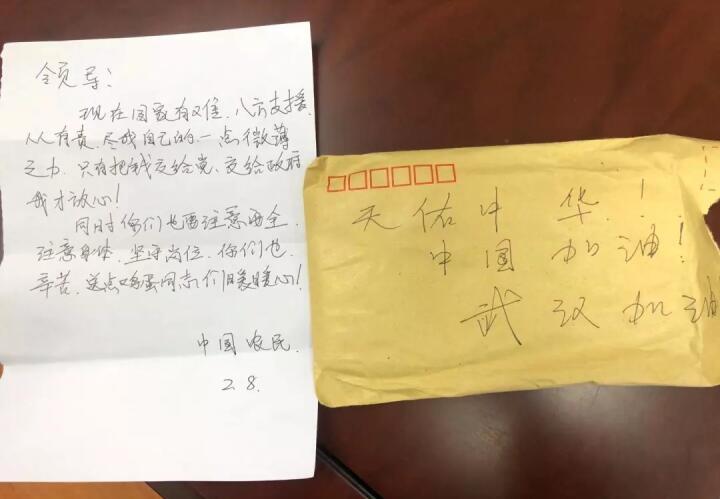 领导:
现在国家有难.八方支援.
人人有责.尽我自己的一点微薄
之力.只有把钱交给党、交给政府
我才放心!
同时你们也要注意安全.
注意身体.坚守岗位.你们也
辛苦.送点鸡蛋同志们暖暖心!
中国农民.
2.8.
天佑中华!
中国加油!
武汉加油